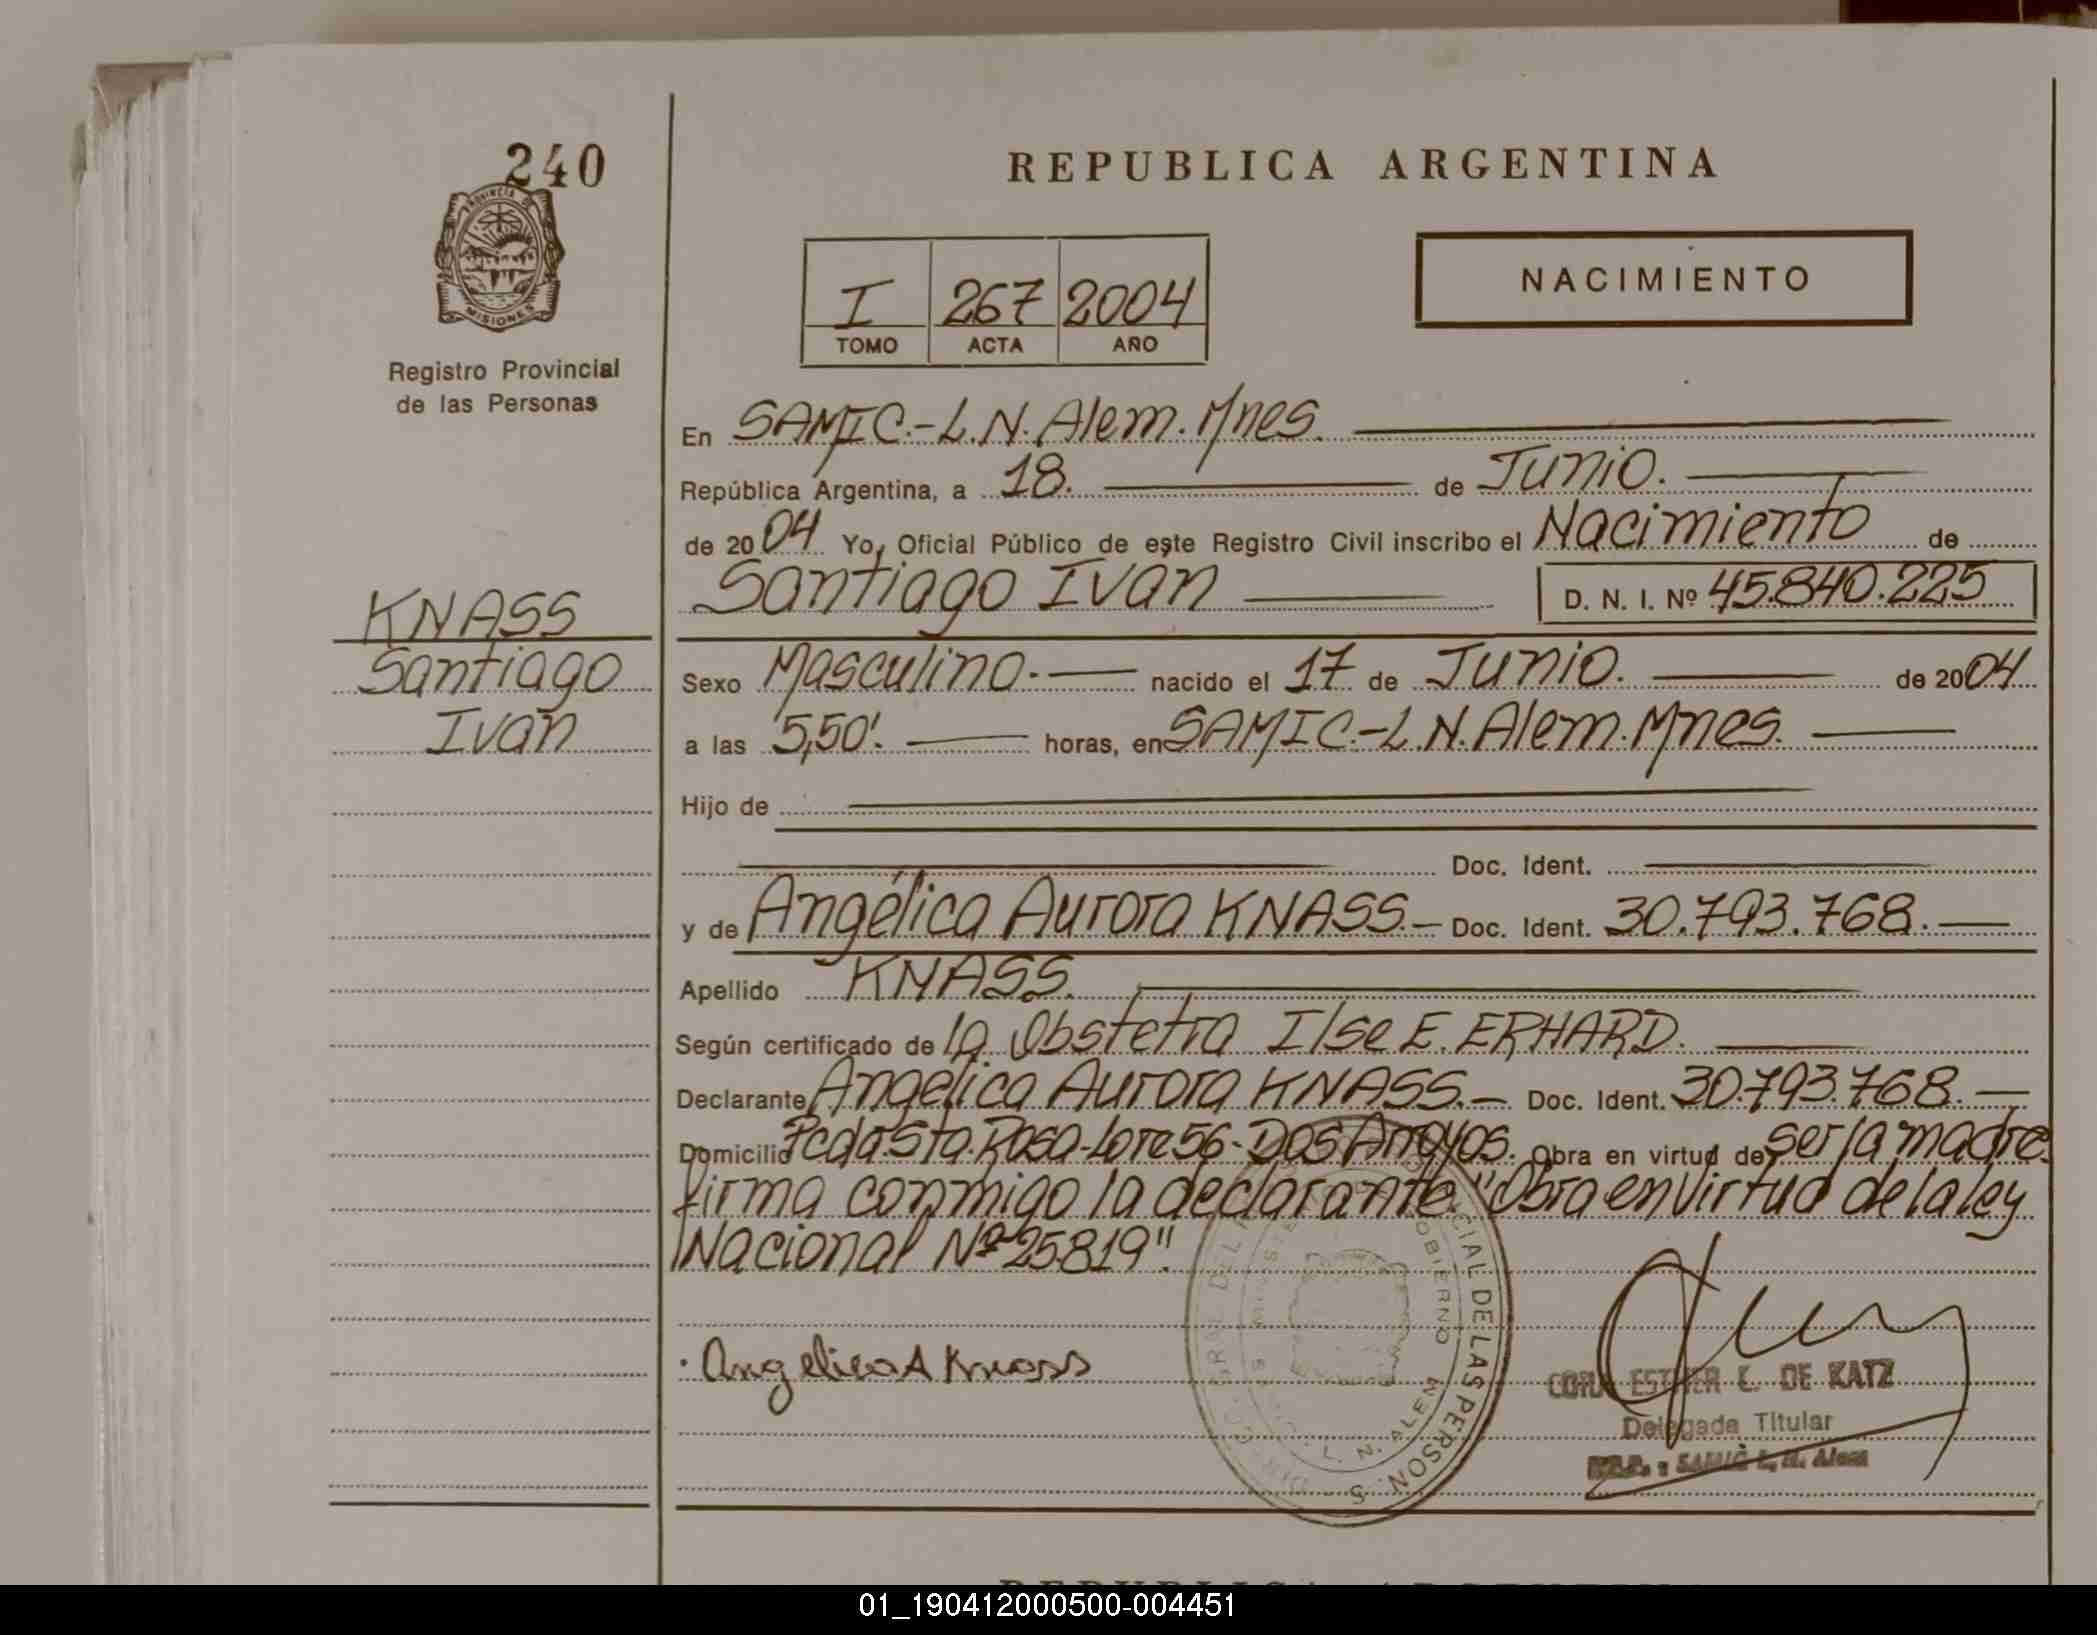 240
PROVINCIA DE
MISIONES
Registro Provincial
de las Personas
KNASS
Santiago
Ivan
REPUBLICA ARGENTINA
I 267 2004
TOMO ACTA AÑO
NACIMIENTO
En SAMIC.-L.N.Alem.Mnes.
República Argentina, a 18. de Junio.
de 2004 Yo, Oficial Público de este Registro Civil inscribo el Nacimiento de
Santiago Ivan D. N. I. Nº 45.840.225
Sexo Masculino.- nacido el 17 de Junio. de 2004
a las 5,50'. horas, en SAMIC.-L.N.Alem.Mnes.
Hijo de
Doc. Ident.
y de Angélica Aurora KNASS.- Doc. Ident. 30.793.768.-
Apellido KNASS.
Según certificado de la Obstetra Ilse E. ERHARD.
Declarante Angelica Aurora KNASS.- Doc. Ident. 30.793.768.-
Domicilio Pcda.Sta.Rosa-Lote 56-Dos Arroyos. Obra en virtud de ser la madre.
firma conmigo la declarante."Obra en Virtud de la ley
Nacional Nº 25819".
Angelica A Knass
PROVINCIAL DE LAS PERSON S
GOBIERNO
L. N. ALEM
ESTHER E. DE KATZ
Delegada Titular
SAMIC L. N. Alem
REPUBLICA ARGENTINA
01_190412000500-004451